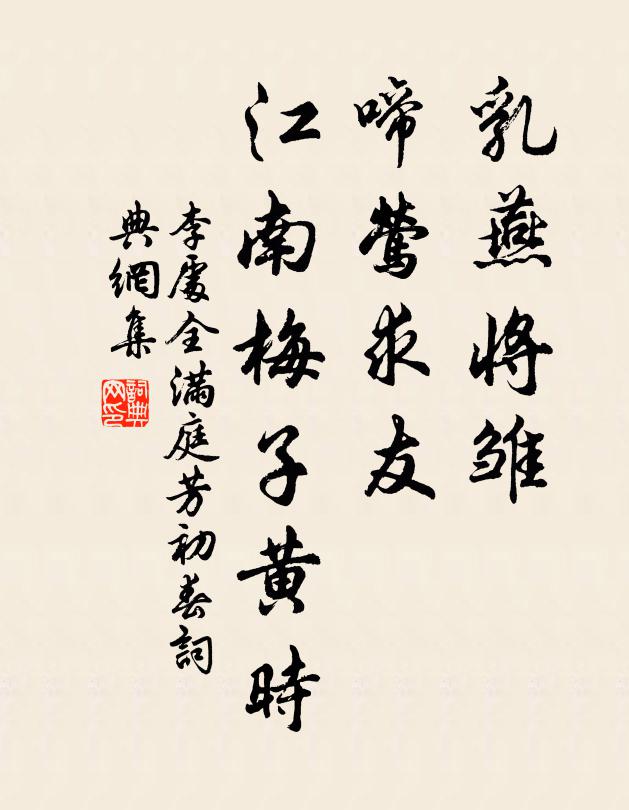 乳燕將雛
啼鶯求友
江南梅子黃時
李處全滿庭芳初春詞
典網集
詞典網印